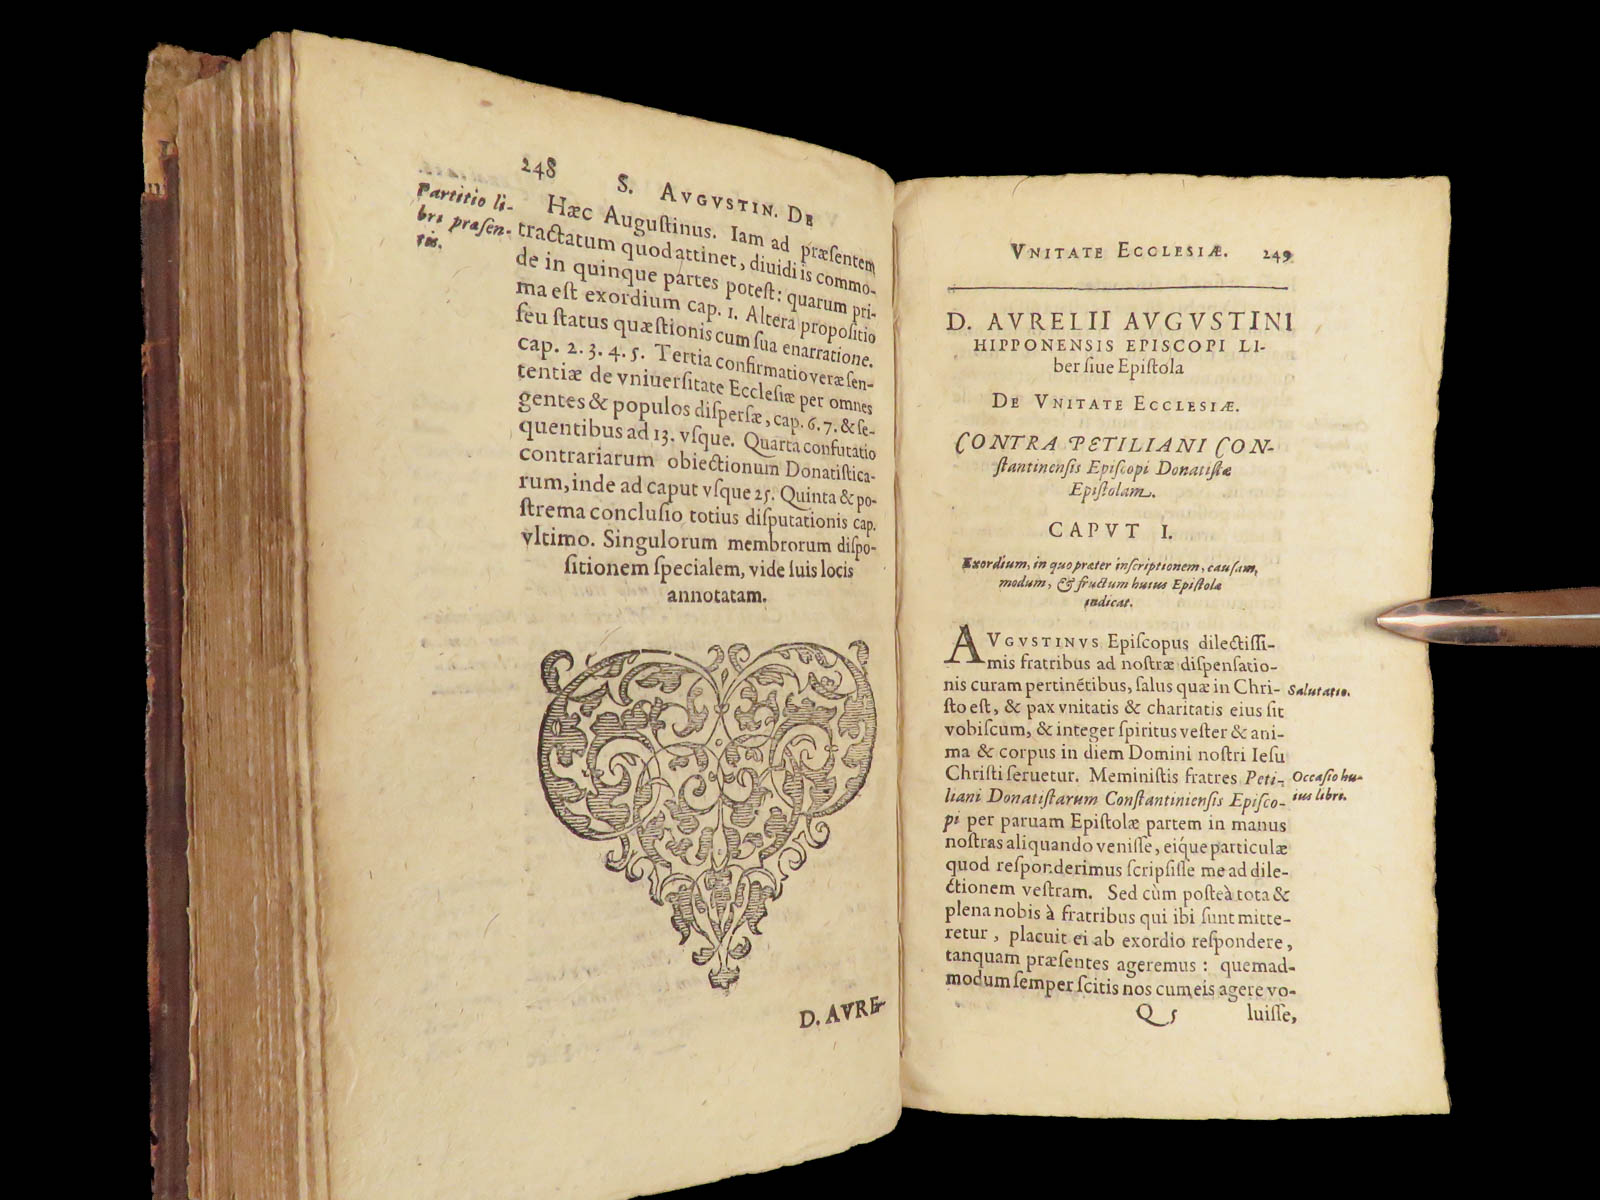 248
S. AVGVSTIN. DE
Partitio li-
bri præsen-
tis.
Hæc Auguſtinus. Iam ad præſentem
tractatum quod attinet, diuidi is commo-
de in quinque partes poteſt: quarum pri-
ma eſt exordium cap. 1. Altera propoſitio
ſeu ſtatus quæſtionis cum ſua enarratione.
cap. 2. 3. 4. 5. Tertia confirmatio veræ ſen-
tentiæ de vniuerſitate Eccleſiæ per omnes
gentes & populos diſperſæ, cap. 6. 7. & ſe-
quentibus ad 13. vſque. Quarta confutatio
contrariarum obiectionum Donatiſtica-
rum, inde ad caput vſque 25. Quinta & po-
ſtrema concluſio totius diſputationis cap.
vltimo. Singulorum membrorum diſpo-
ſitionem ſpecialem, vide ſuis locis
annotatam.
D. AVRE-
VNITATE ECCLESIÆ. 249
D. AVRELII AVGVSTINI
HIPPONENSIS EPISCOPI LI-
ber ſiue Epiſtola
DE VNITATE ECCLESIÆ.
CONTRA PETILIANI CON-
ſtantinenſis Epiſcopi Donatiſtæ
Epiſtolam.
CAPVT I.
Exordium, in quo præter inſcriptionem, cauſam,
modum, & fructum huius Epiſtolæ
indicat.
AVGVSTINVS Epiſcopus dilectiſſi-
mis fratribus ad noſtræ diſpenſatio-
nis curam pertinẽtibus, ſalus quæ in Chri-
Salutatio.
ſto eſt, & pax vnitatis & charitatis eius ſit
vobiſcum, & integer ſpiritus veſter & ani-
ma & corpus in diem Domini noſtri Ieſu
Chriſti ſeruetur. Meminiſtis fratres Peti-
Occaſio hu-
ius libri.
liani Donatiſtarum Conſtantinienſis Epiſco-
pi per paruam Epiſtolæ partem in manus
noſtras aliquando veniſſe, eique particulæ
quod reſponderimus ſcripſiſſe me ad dile-
ctionem veſtram. Sed cùm poſteà tota &
plena nobis à fratribus qui ibi ſunt mitte-
retur, placuit ei ab exordio reſpondere,
tanquam præſentes ageremus: quemad-
modum ſemper ſcitis nos cum eis agere vo-
Q 5
luiſſe,